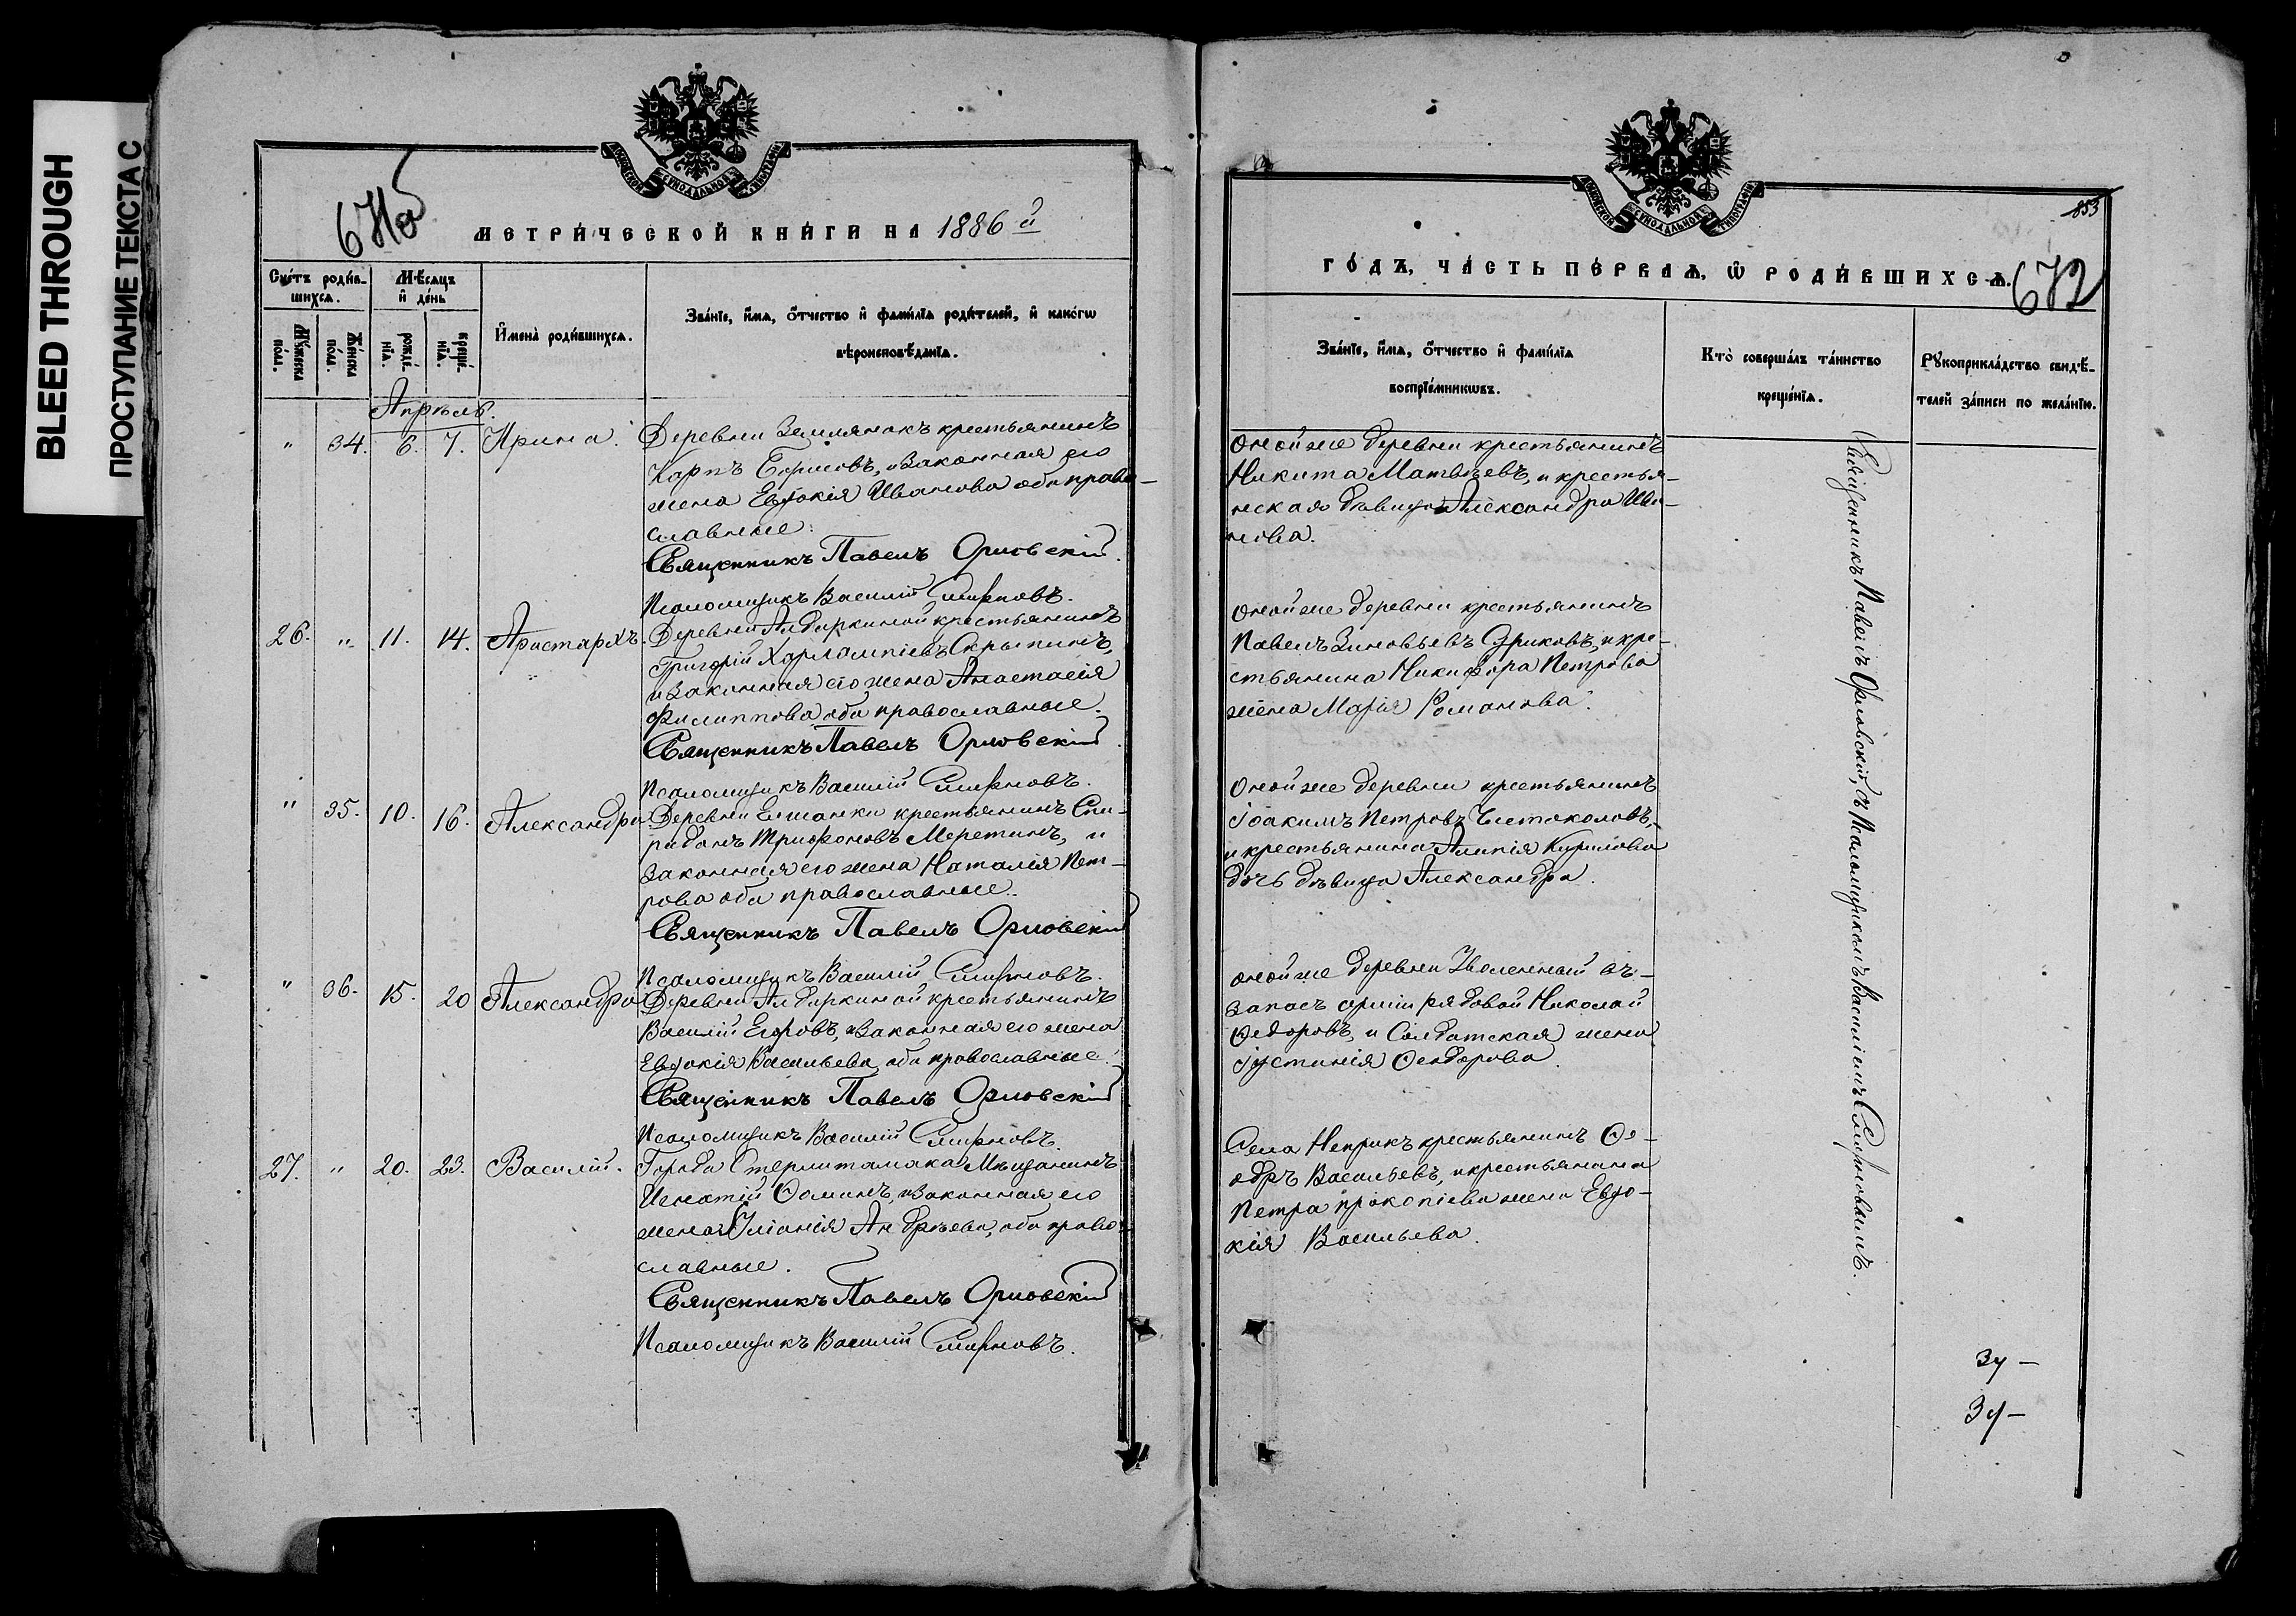 BLEED THROUGH
ПРОСТУПАНИЕ ТЕКСТА С
671об
МЕТРИЧЕСКОЙ КНИГИ НА 1886й
Счетъ родив-
шихся.
Мѣсяцъ
и день
Мужеска
пола.
Женска
пола.
рожде-
нія.
креще-
нія.
Имена родившихся.
Званіе, имя, отчество и фамилія родителей, и какогѡ
вѣроисповѣданія.
Апрѣль.
" 34. 6. 7. Ирина.
Деревни Землянокъ крестьянинъ
Карпъ Борисовъ, и законная его
жена Евдокія Иванова оба право-
славные.
Священникъ Павелъ Орловскій.
Псаломщикъ Василій Смирновъ.
26. " 11. 14. Аристархъ.
Деревни Алдаркиной крестьянинъ
Григорій Харлампіевъ Скрыпинъ,
и законная его жена Анастасія
Филиппова оба православные.
Священникъ Павелъ Орловскій.
Псаломщикъ Василій Смирновъ.
" 35. 10. 16. Александра
Деревни Елшанки крестьянинъ Спи-
ридонъ Трифоновъ Меретинъ, и
законная его жена Наталія Пет-
рова оба православные.
Священникъ Павелъ Орловскій
Псаломщикъ Василій Смирновъ.
" 36. 15. 20 Александра
Деревни Алдаркиной крестьянинъ
Василій Егоровъ, и законная его жена
Евдокія Васильева, оба православные.
Священникъ Павелъ Орловскій
Псаломщикъ Василій Смирновъ.
27. " 20. 23. Василій.
Города Стерлитамака Мѣщанинъ
Игнатій Ѳоминъ, и законная его
жена Уліанія Андрѣева, оба право-
славные.
Священникъ Павелъ Орловскій
Псаломщикъ Василій Смирновъ.
853
ГОДЪ, ЧАСТЬ ПЕРВАЯ, Ѡ РОДИВШИХСЯ.
672
Званіе, имя, отчество и фамилія
воспріемникѡвъ.
Кто совершалъ таинство
крещенія.
Рукоприкладство свидѣ-
телей записи по желанію.
Оной же деревни крестьянинъ
Никита Матвѣевъ, и крестья-
нская дѣвица Александра Ива-
нова.
Оной же деревни крестьянинъ
Павелъ Зиновьевъ и кре-
стьянина Никифора Петрова
жена Марія Романова.
Оной же деревни крестьянинъ
Іоакимъ Петровъ
и крестьянина Алипія Кирилова
дочь дѣвица Александра.
Оной же деревни Уволенный въ-
запасъ арміи рядовой Николай
Ѳедоровъ, и Солдатская жена
Іустинія Ѳеодорова.
Села Неприкъ крестьянинъ Ѳе-
одръ Васильевъ, и крестьянина
Петра Прокопіева жена Евдо-
кія Васильева.
Священникъ Павелъ Орловскій, съ Псаломщикомъ Василіемъ Смирновымъ.